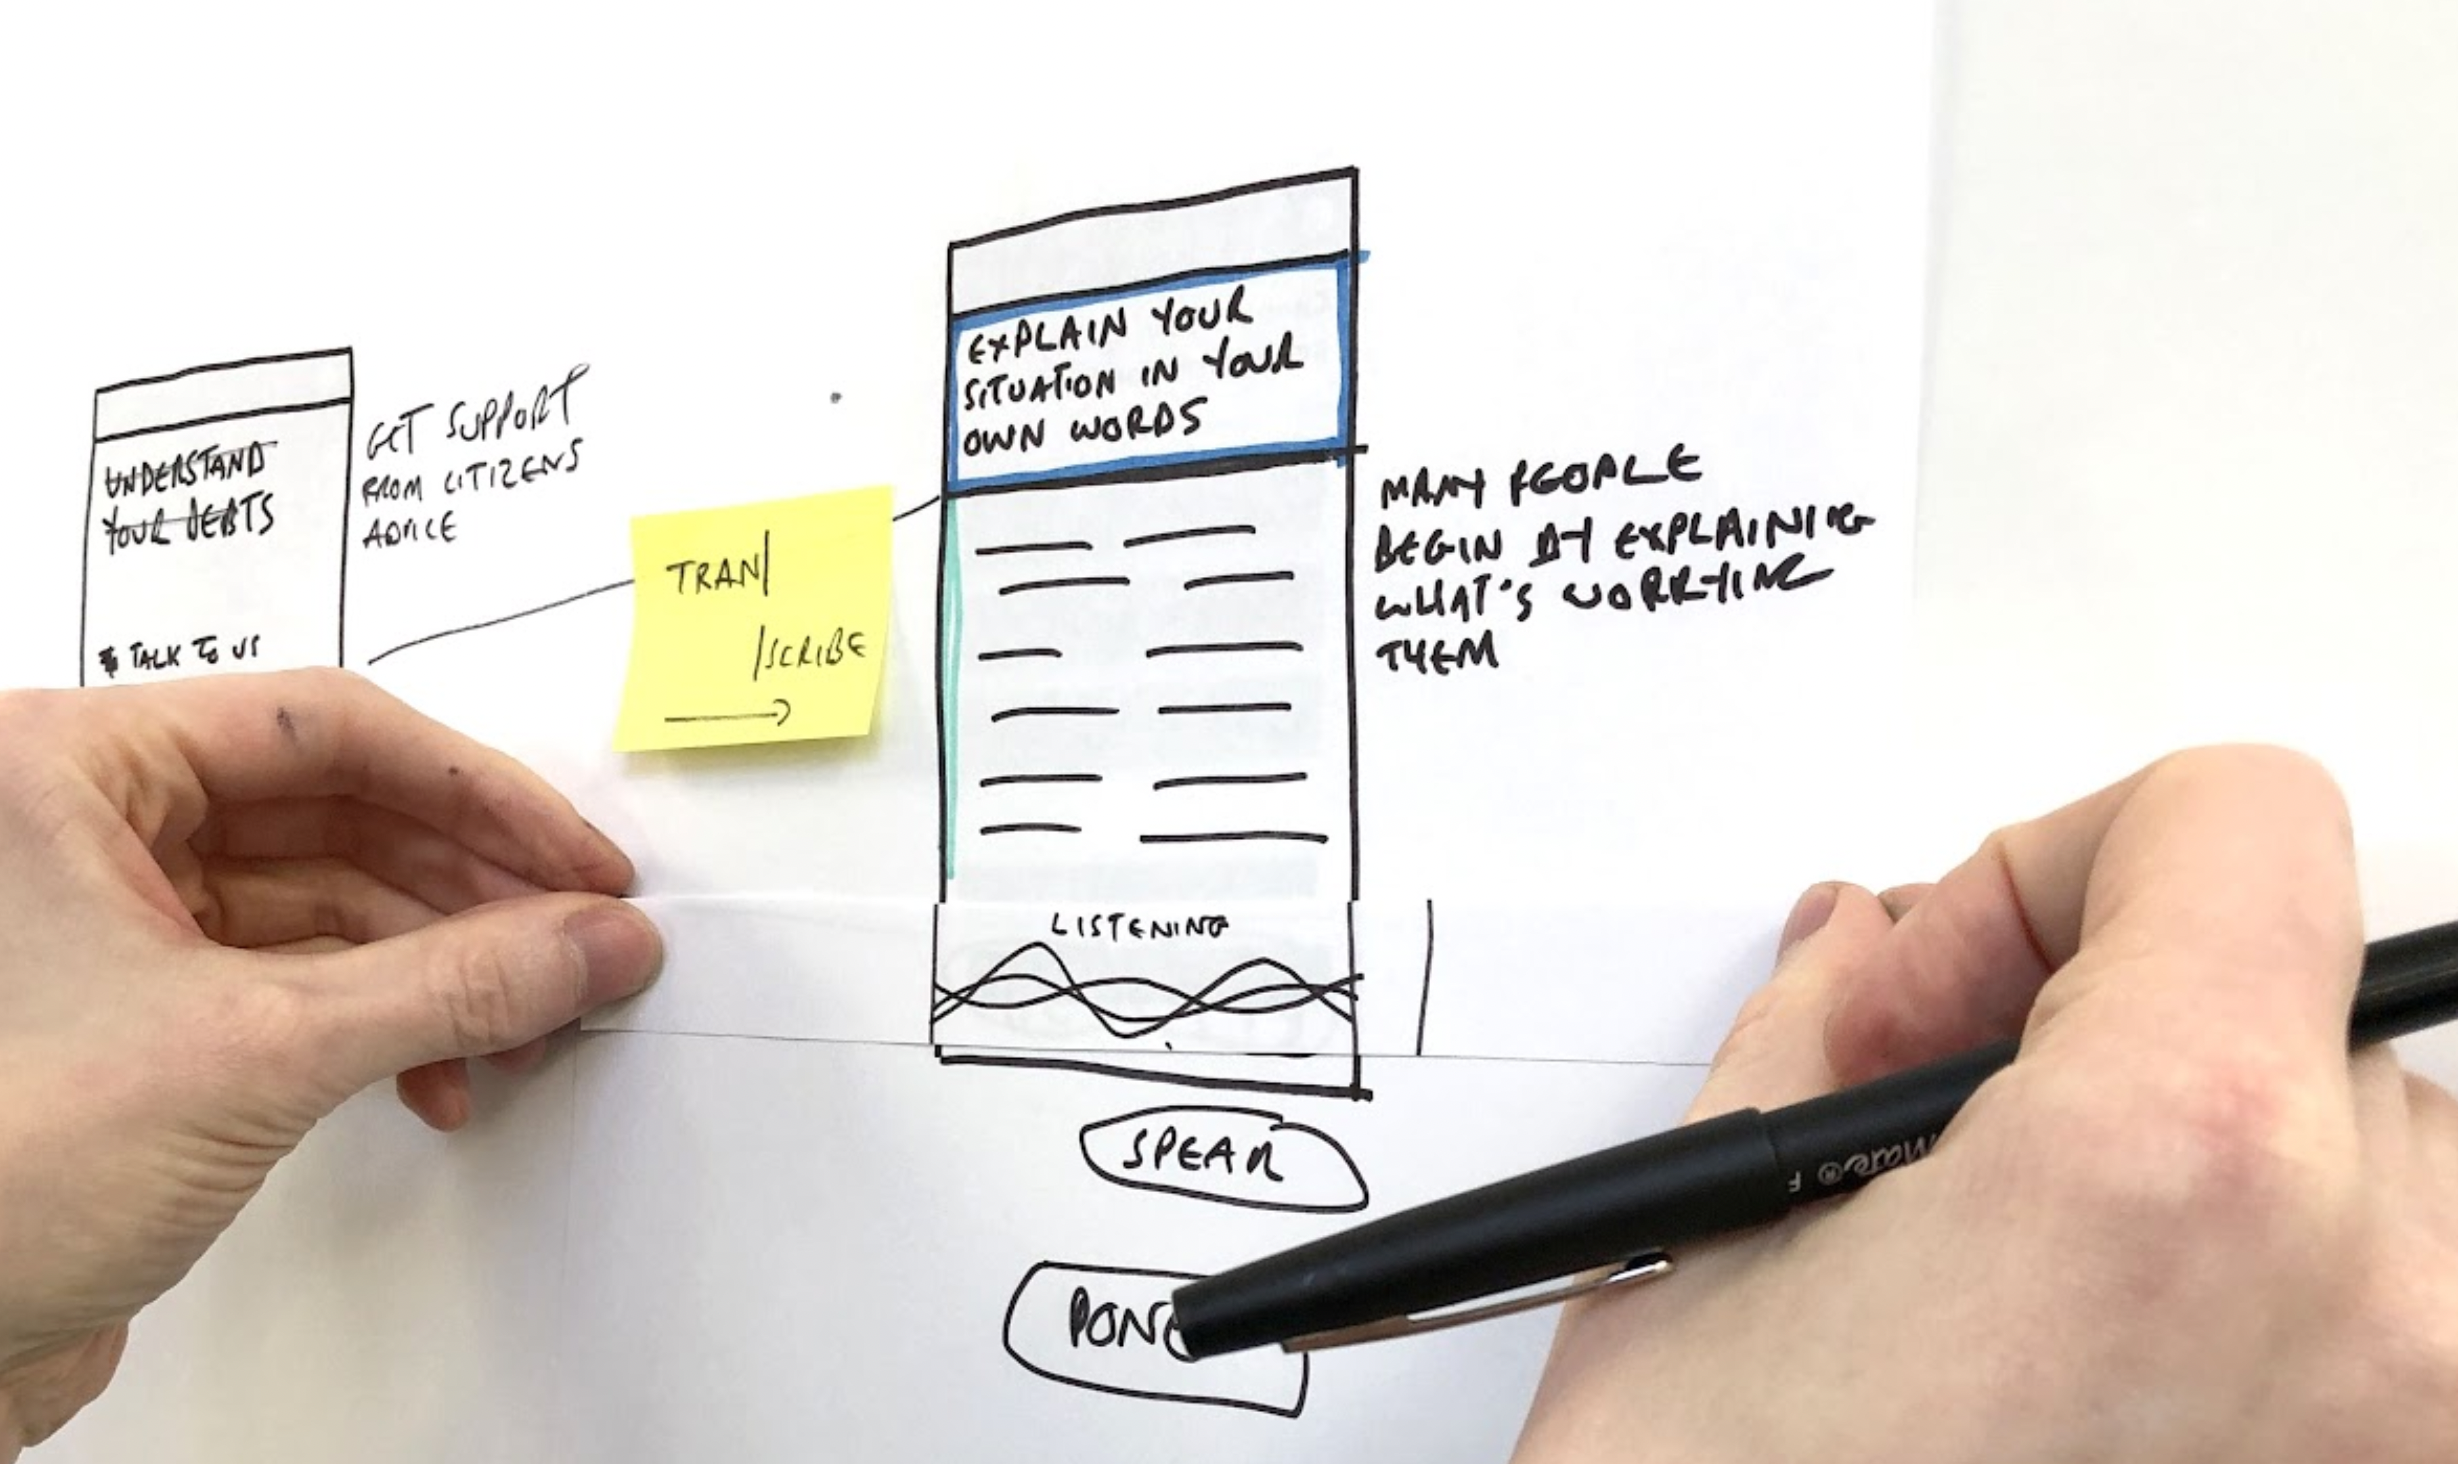 UNDERSTAND
YOUR DEBTS
TALK TO US
GET SUPPORT
FROM CITIZENS
ADVICE
TRAN/
/SCRIBE
EXPLAIN YOUR
SITUATION IN YOUR
OWN WORDS
MANY PEOPLE
BEGIN BY EXPLAINING
WHAT'S WORRYING
THEM
LISTENING
SPEAK
DONE
Mate® F